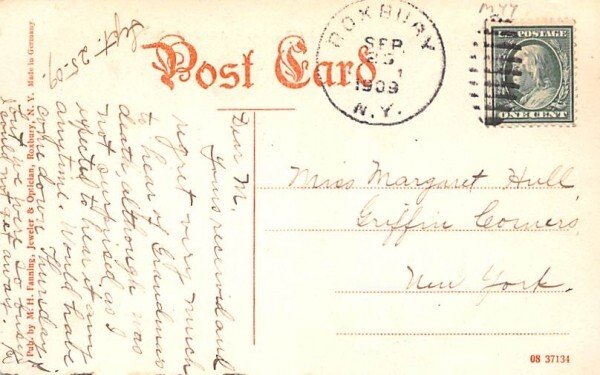 Sept. 25-09.
Post Card
ROXBURY
SEP
25
1909
N.Y.
U.S. POSTAGE
ONE CENT
Dear M.
Yours received and
regret very much
to hear of Grandma's
death, although was
not surprised, as I
expected to hear any
anytime. Would have
come down Thursday
but we were so busy
could not get away.
Miss Margaret Hull,
Griffin Corners,
New York.
Pub. by M. H. Fanning, Jeweler & Optician, Roxbury, N. Y. Made in Germany
08 37134